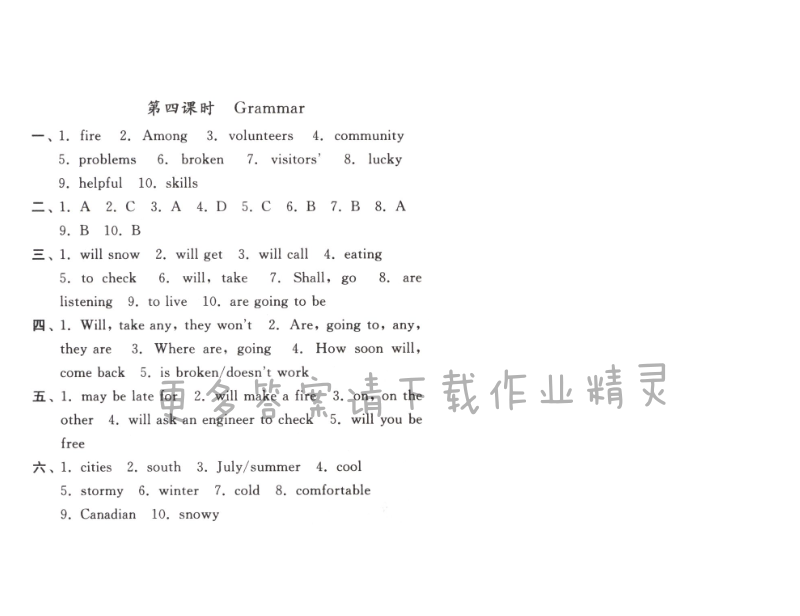 第四课时 Grammar
一、1. fire 2. Among 3. volunteers 4. community
5. problems 6. broken 7. visitors' 8. lucky
9. helpful 10. skills
二、1. A 2. C 3. A 4. D 5. C 6. B 7. B 8. A
9. B 10. B
三、1. will snow 2. will get 3. will call 4. eating
5. to check 6. will, take 7. Shall, go 8. are
listening 9. to live 10. are going to be
四、1. Will, take any, they won't 2. Are, going to, any,
they are 3. Where are, going 4. How soon will,
come back 5. is broken/doesn't work
五、1. may be late for 2. will make a fire 3. on, on the
other 4. will ask an engineer to check 5. will you be
free
六、1. cities 2. south 3. July/summer 4. cool
5. stormy 6. winter 7. cold 8. comfortable
9. Canadian 10. snowy
更多答案请下载作业精灵